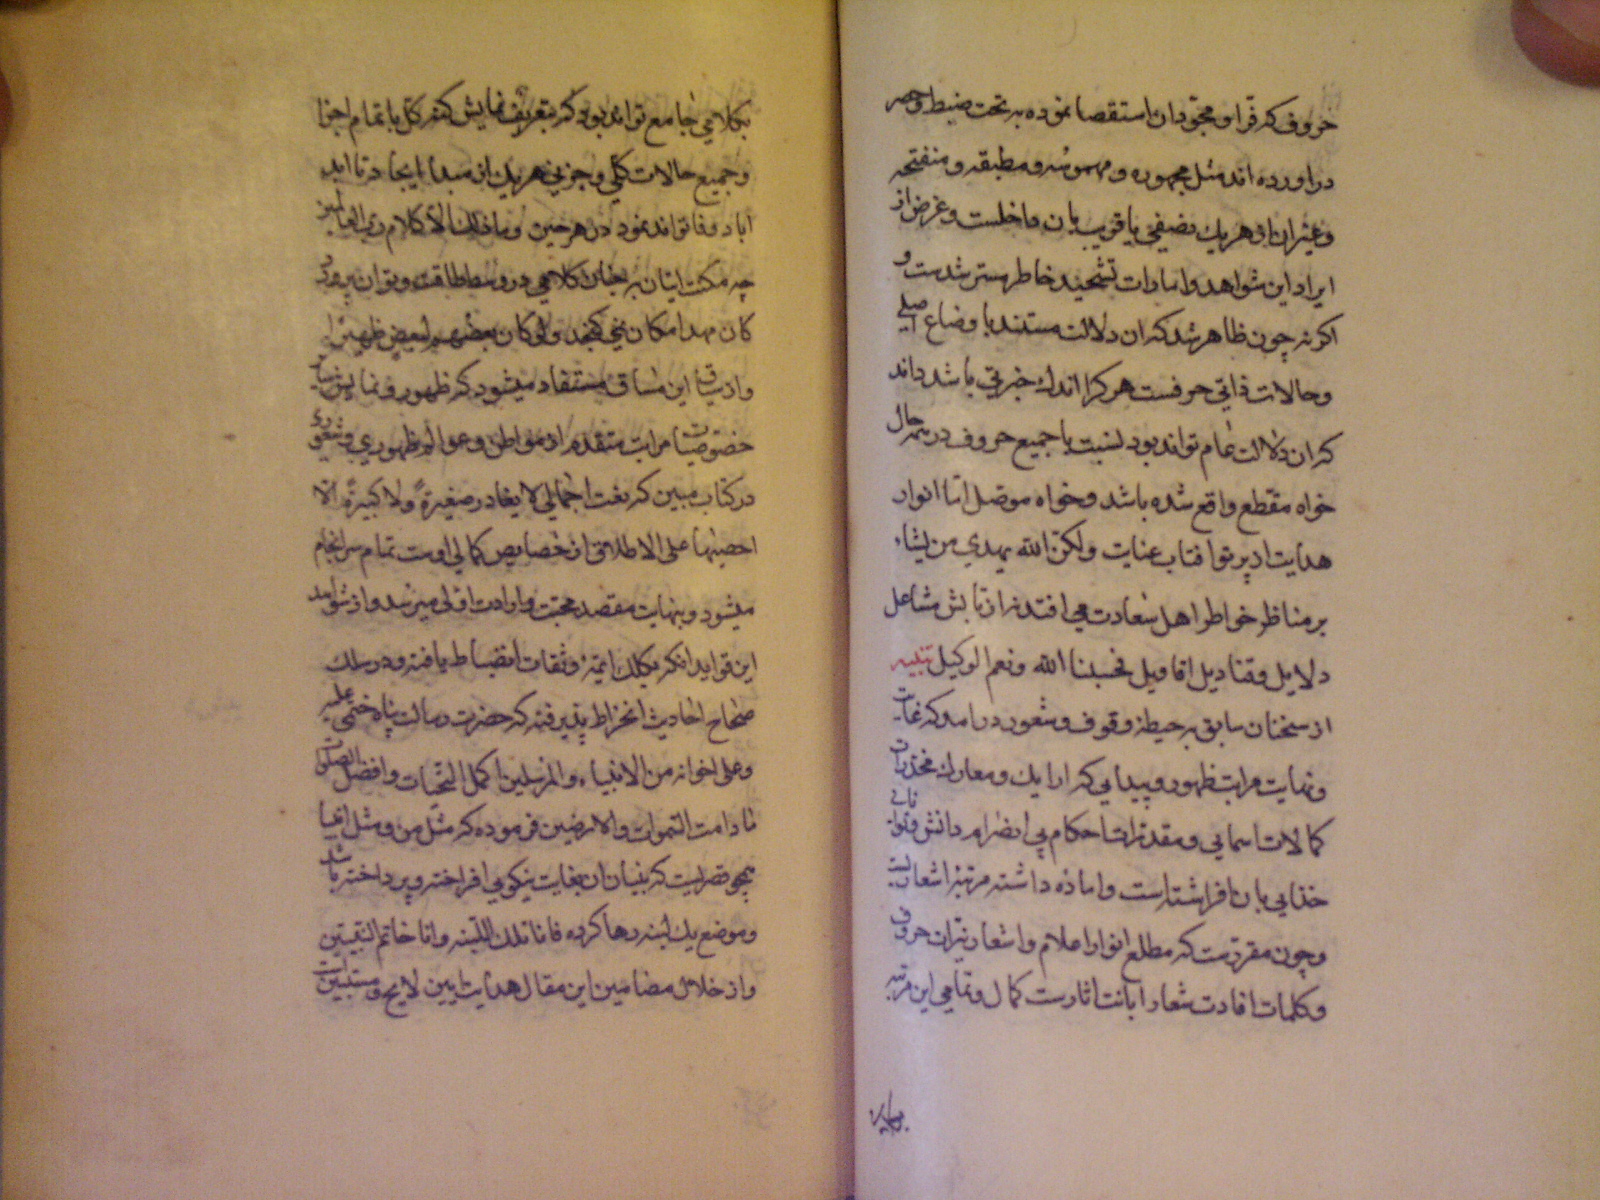 حروف که قرا و مجودان استقصا نموده به تحت ضبط و حصر
در آورده اند مثل مجهوره و مهموسه و مطبقه و منفتحه
و غیر ان از هر یک نصفی یا قریب بان داخلست و غرض از
ایراد این شواهد و امارات تشحیذ خاطر مسترشدست و
اکرنه چون ظاهر شد که ان دلالت مستند باوضاع اصلی
و حالات ذاتی حرفست هر کرا اندک خبرتی باشد داند
که ان دلالت عام تواند بود نسبت با جمیع حروف در همه حال
خواه مقطع واقع شده باشد و خواه موصل اما انوار
هدایت از پرتو افتاب عنایت ولکن الله یهدی من یشاء
بر مناظر خواطر اهل سعادت می افتد نه از تابش مشاعل
دلایل و قنادیل اقاویل فحسبنا الله ونعم الوکیل تنبیه
از سخنان سابق به حیطه وقوف و شعور در امد که غایت
و نهایت مراتب ظهور و پیدایی که ارایک و معارک مخدرات
کمالات اسمایی و مقدرات احکام بی انصرام دانش و توانایی
خدایی بان افراشته است و اماده داشته مرتبه اشعارست
و چون مقررست که مطلع انوار اعلام و اشعار نیران حروف
و کلمات افادت شعار ابانت اثارست کمال و تمامی این مرتبه
بکلامی جامع تواند بود که بتعریف نمایش کنه کل با تمام اجزا
و جمیع حالات کلی و جزیی هر یک از مبداء ایجاد تا ابد
اباد وفا تواند نمود در هر حین وما ذلک الا کلام رب العالمین
چه مکنت اتیان به چنان کلامی در وسط طاقت و توان پرورد
کان مهد امکان نمی کنجد ولو کان بعضهم لبعض ظهیرا
و از سیاق این مساق مستفاد میشود که ظهور و نمایش تمام
خصوصیات مراتب متقدم از مواطن و عوالم ظهوری و شعوری
در کتاب مبین که نعت اجمالی لا یغادر صغیرة ولا کبیرة الا
احصیها علی الاطلاق از خصایص کمالی اوست تمام سرانجام
میشود و بنهایت مقصد محبت و ارادت اولی میرسد و از شواهد
این فواید انکه بکلک ایمه و ثقات انضباط یافته و در سلک
صحاح احادیث انخراط پذیرفته که حضرت رسالت پناه ختمی علیه
وعلی اخوانه من الانبیاء والمرسلین اکمل التحیات وافضل الصلوات
ما دامت السموات والارضین فرموده که مثل من و مثل انبیا
همچو قصریست که بنیان ان بغایت نیکویی افراخته و پرداخته باشد
و موضع یک لبنه رها کرده فانا تلک اللبنه وانا خاتم النبیین
و از خلال مضامین این مقال هدایت ایین لایح و مستبین است